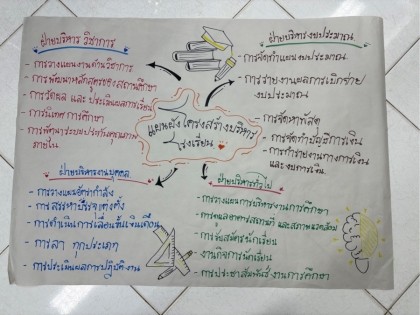 ฝ่ายบริหาร วิชาการ
- การวางแผนงานด้านวิชาการ
- การพัฒนาหลักสูตรของสถานศึกษา
- การวัดผล และ ประเมินผลการเรียน
- การนิเทศ การศึกษา
- การพัฒนาระบบประกันคุณภาพ
ภายใน
ฝ่ายบริหารงบประมาณ
- การจัดทำแผนงบประมาณ
- การรายงานผลการเบิกจ่าย
งบประมาณ
- การจัดหาพัสดุ
- การจัดทำบัญชีการเงิน
- การทำรายงานทางการเงิน
และงบการเงิน
แผนผังโครงสร้างบริหาร
โรงเรียน
ฝ่ายบริหารงานบุคคล
- การวางแผนอัตรากำลัง
- การสรรหาบรรจุแต่งตั้ง
- การดำเนินการเลื่อนขั้นเงินเดือน
- การลา ทุกประเภท
- การประเมินผลการปฏิบัติงาน
ฝ่ายบริหารทั่วไป
- การวางแผนการบริหารงานการศึกษา
- การดูแลอาคารสถานที่ และสภาพแวดล้อม
- การรับสมัครนักเรียน
- งานกิจการนักเรียน
- การประชาสัมพันธ์งานการศึกษา